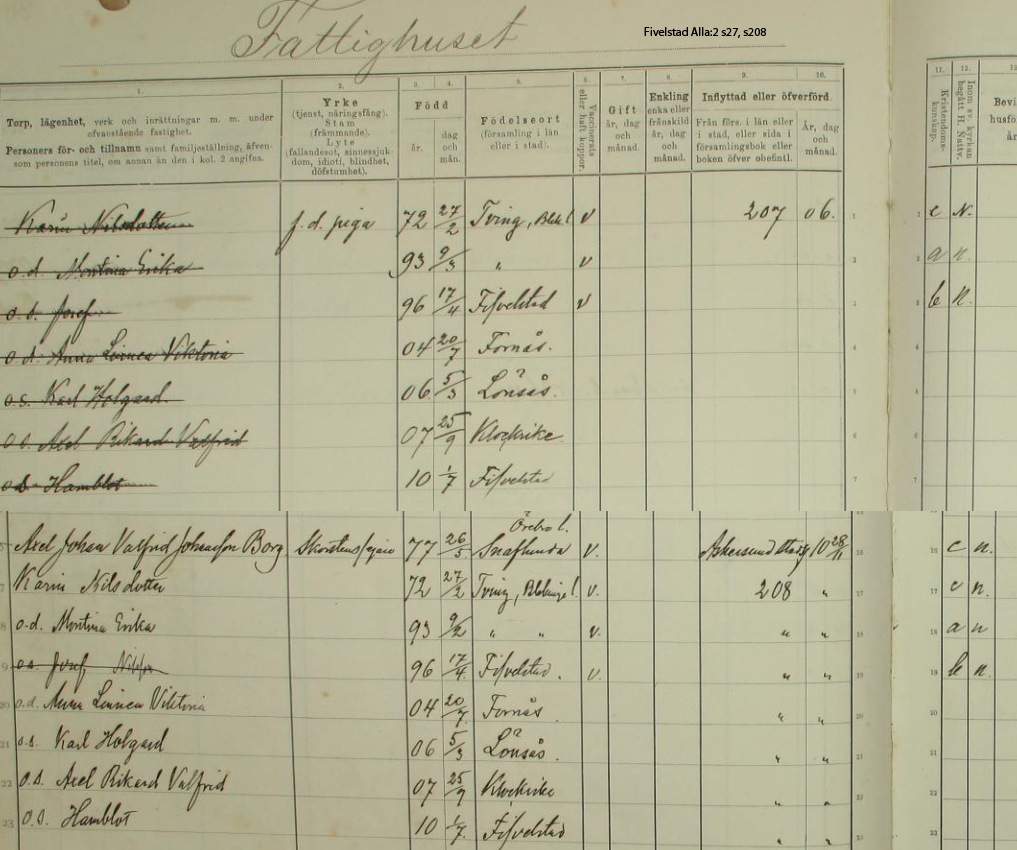 Fattighuset
Fivelstad AIIa:2 s27, s208
1. 2. 3. 4. 5. 6. 7. 8. 9. 10. 11. 12.
Torp, lägenhet, verk och inrättningar m. m. under
ofvanstående fastighet.
Personers för- och tillnamn samt familjeställning, äfven-
som personens titel, om annan än den i kol. 2 angifna.
Yrke
(tjenst, näringsfång).
Stam
(främmande).
Lyte
(fallandesot, sinnessjuk-
dom, idioti, blindhet,
döfstumhet).
Född
år.
dag
och
mån.
Födelseort
(församling i län
eller i stad).
Vaccinerats
eller haft koppor.
Gift
år, dag
och
månad.
Enkling
enka eller
frånskild
år, dag
och
månad.
Inflyttad eller öfverförd.
Från förs. i län eller
i stad, eller sida i
församlingsbok eller
boken öfver obefintl.
År, dag
och
månad.
Kristendoms-
kunskap.
Inom sv. kyrkan
begått H. Nattv.
Karin Nilsdotter f.d. piga 72 27/2 Tving, Blek l v 207 06. 1 c n.
o.d. Montina Erika 93 9/3 " v 2 a n.
o.s. Josef 96 17/4 Fifvelstad v 3 b n.
o.d. Anna Linnea Viktoria 04 20/7 Fornås. 4
o.s. Karl Holgard. 06 5/3 Lönsås. 5
o.s. Axel Rikard Valfrid 07 25/9 Klockrike 6
o.s. Hamblot 10 1/7 Fifvelstad 7
Örebro l.
Axel Johan Valfrid Johansson Borg Skorstensfejare 77 26/5 Snaflunda v. Askersund stadsf 10 28/11 16 c n.
Karin Nilsdotter 72 27/2 Tving, Blekinge l v. 208 " 17 c n.
18 o.d. Montina Erika 93 9/2 " " v. " " 18 a n
19 o.s. Josef 96 17/4 Fifvelstad. v. " " 19 b n.
20 o.d. Anna Linnea Viktoria 04 20/7 Fornås " " 20
21 o.s. Karl Holgard 06 5/3 Lönsås. " " 21
22 o.s. Axel Rikard Valfrid 07 25/9 Klockrike " " 22
23 o.s. Hamblot 10 1/7 Fifvelstad " " 23